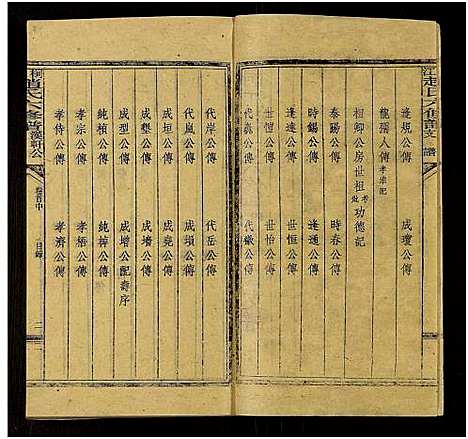 逢規公傳
成瓊公傳
龍弼人傳
相卿公房世祖功德記
泰賜公傳
時春公傳
時錫公傳
逢通公傳
逢達公傳
世恒公傳
世愷公傳
世怡公傳
代義公傳
代徽公傳
代岸公傳
代岳公傳
代嵐公傳
成損公傳
成垣公傳
成堯公傳
成墾公傳
成墻公傳
成型公傳
成增公配壽序
純楨公傳
純棹公傳
孝宗公傳
孝梧公傳
孝侍公傳
孝濟公傳
趙氏六修譜 漢軒公
卷首中
目錄
二